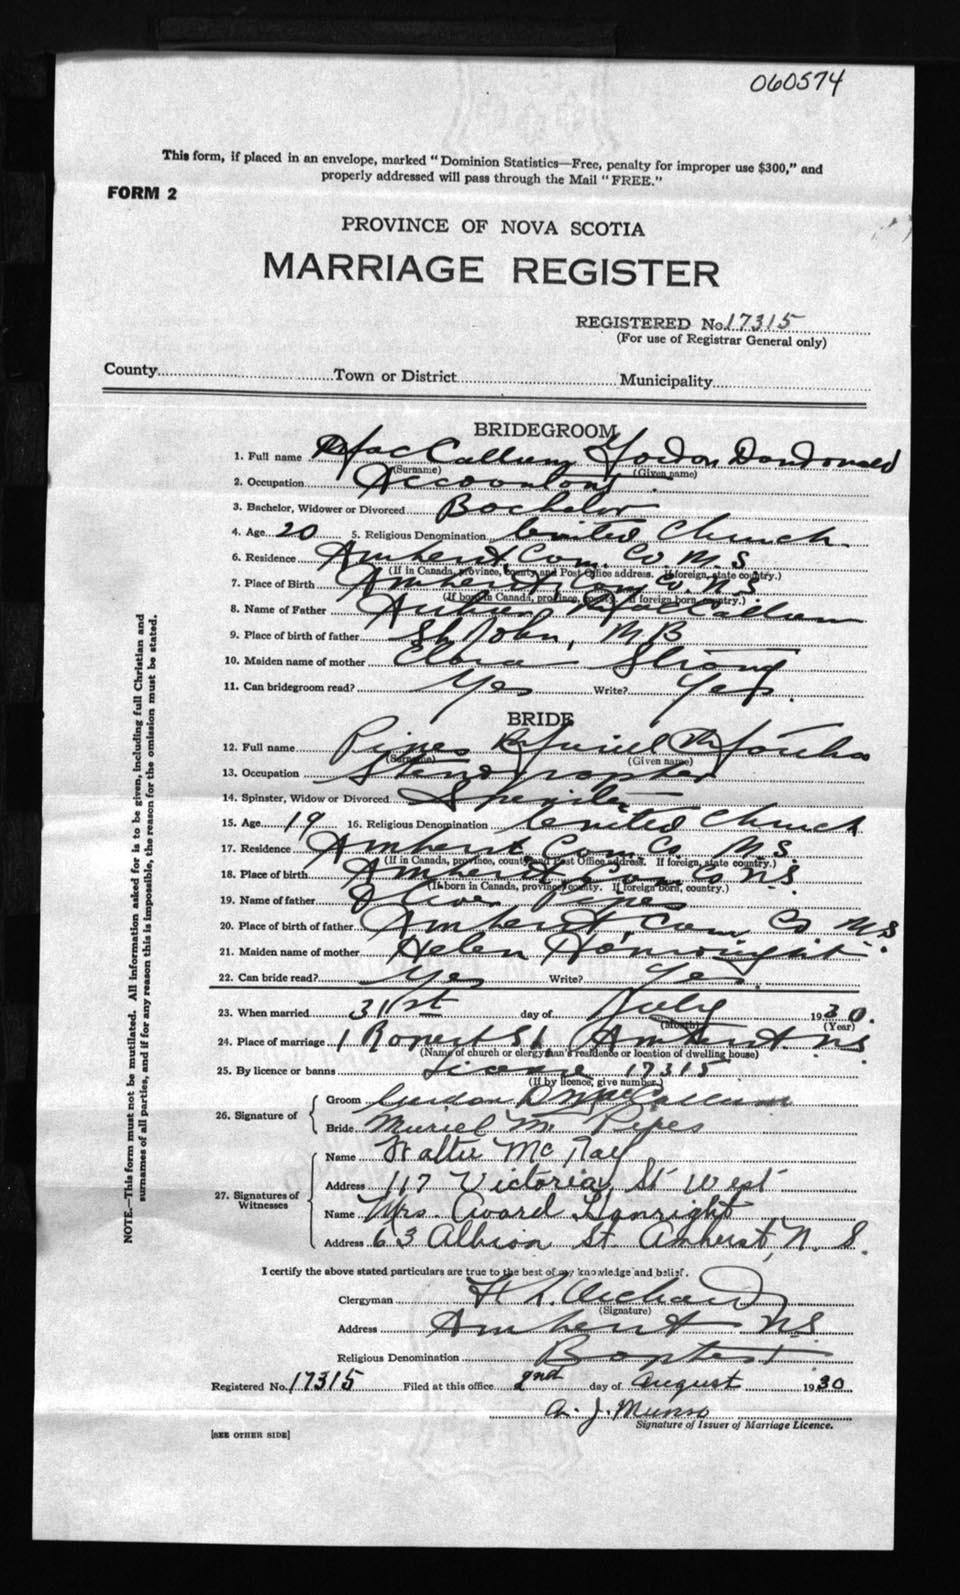 060574
This form, if placed in an envelope, marked "Dominion Statistics—Free, penalty for improper use $300," and
properly addressed will pass through the Mail "FREE."
FORM 2
PROVINCE OF NOVA SCOTIA
MARRIAGE REGISTER
REGISTERED No. 17315
(For use of Registrar General only)
County Town or District Municipality
BRIDEGROOM
1. Full name MacCallum Gordon
(Surname) (Given name)
2. Occupation Accountant
3. Bachelor, Widower or Divorced Bachelor
4. Age 20 5. Religious Denomination United Church
6. Residence Amherst, Cum. Co. N.S.
(If in Canada, province, county and Post Office address. If foreign, state country.)
7. Place of Birth Amherst, Cum Co. N.S.
(If born in Canada, province, county. If foreign born country.)
8. Name of Father MacCallum
9. Place of birth of father St John, N.B
10. Maiden name of mother Strong
11. Can bridegroom read? Yes Write? Yes.
BRIDE
12. Full name Pipes Muriel
(Surname) (Given name)
13. Occupation Stenographer
14. Spinster, Widow or Divorced Spinster
15. Age 19 16. Religious Denomination United Church
17. Residence Amherst Cum Co. N.S.
(If in Canada, province, county and Post Office address. If foreign, state country.)
18. Place of birth Amherst Cum Co N.S.
(If born in Canada, province, county. If foreign born, country.)
19. Name of father Oliver Pipes
20. Place of birth of father Amherst, Cum Co N.S.
21. Maiden name of mother Helen
22. Can bride read? Yes Write? Yes.
23. When married 31st day of July 1930.
(Month) (Year)
24. Place of marriage 1 Rupert St Amherst N.S.
(Name of church or clergyman's residence or location of dwelling house)
25. By licence or banns License 17315
(If by licence, give number.)
26. Signature of Groom Gordon D McCallum
Bride Muriel M. Pipes
27. Signatures of Witnesses
Name Walter McKay
Address 117 Victoria St West
Name Mrs. Avard
Address 63 Albion St. Amherst, N. S.
I certify the above stated particulars are true to the best of my knowledge and belief.
Clergyman
(Signature)
Address Amherst N.S.
Religious Denomination Baptist
Registered No. 17315 Filed at this office 2nd day of August 1930
A. J. Munro
Signature of Issuer of Marriage Licence.
[SEE OTHER SIDE]
NOTE.—This form must not be mutilated. All information asked for is to be given, including full Christian and
surnames of all parties, and if for any reason this is impossible, the reason for the omission must be stated.